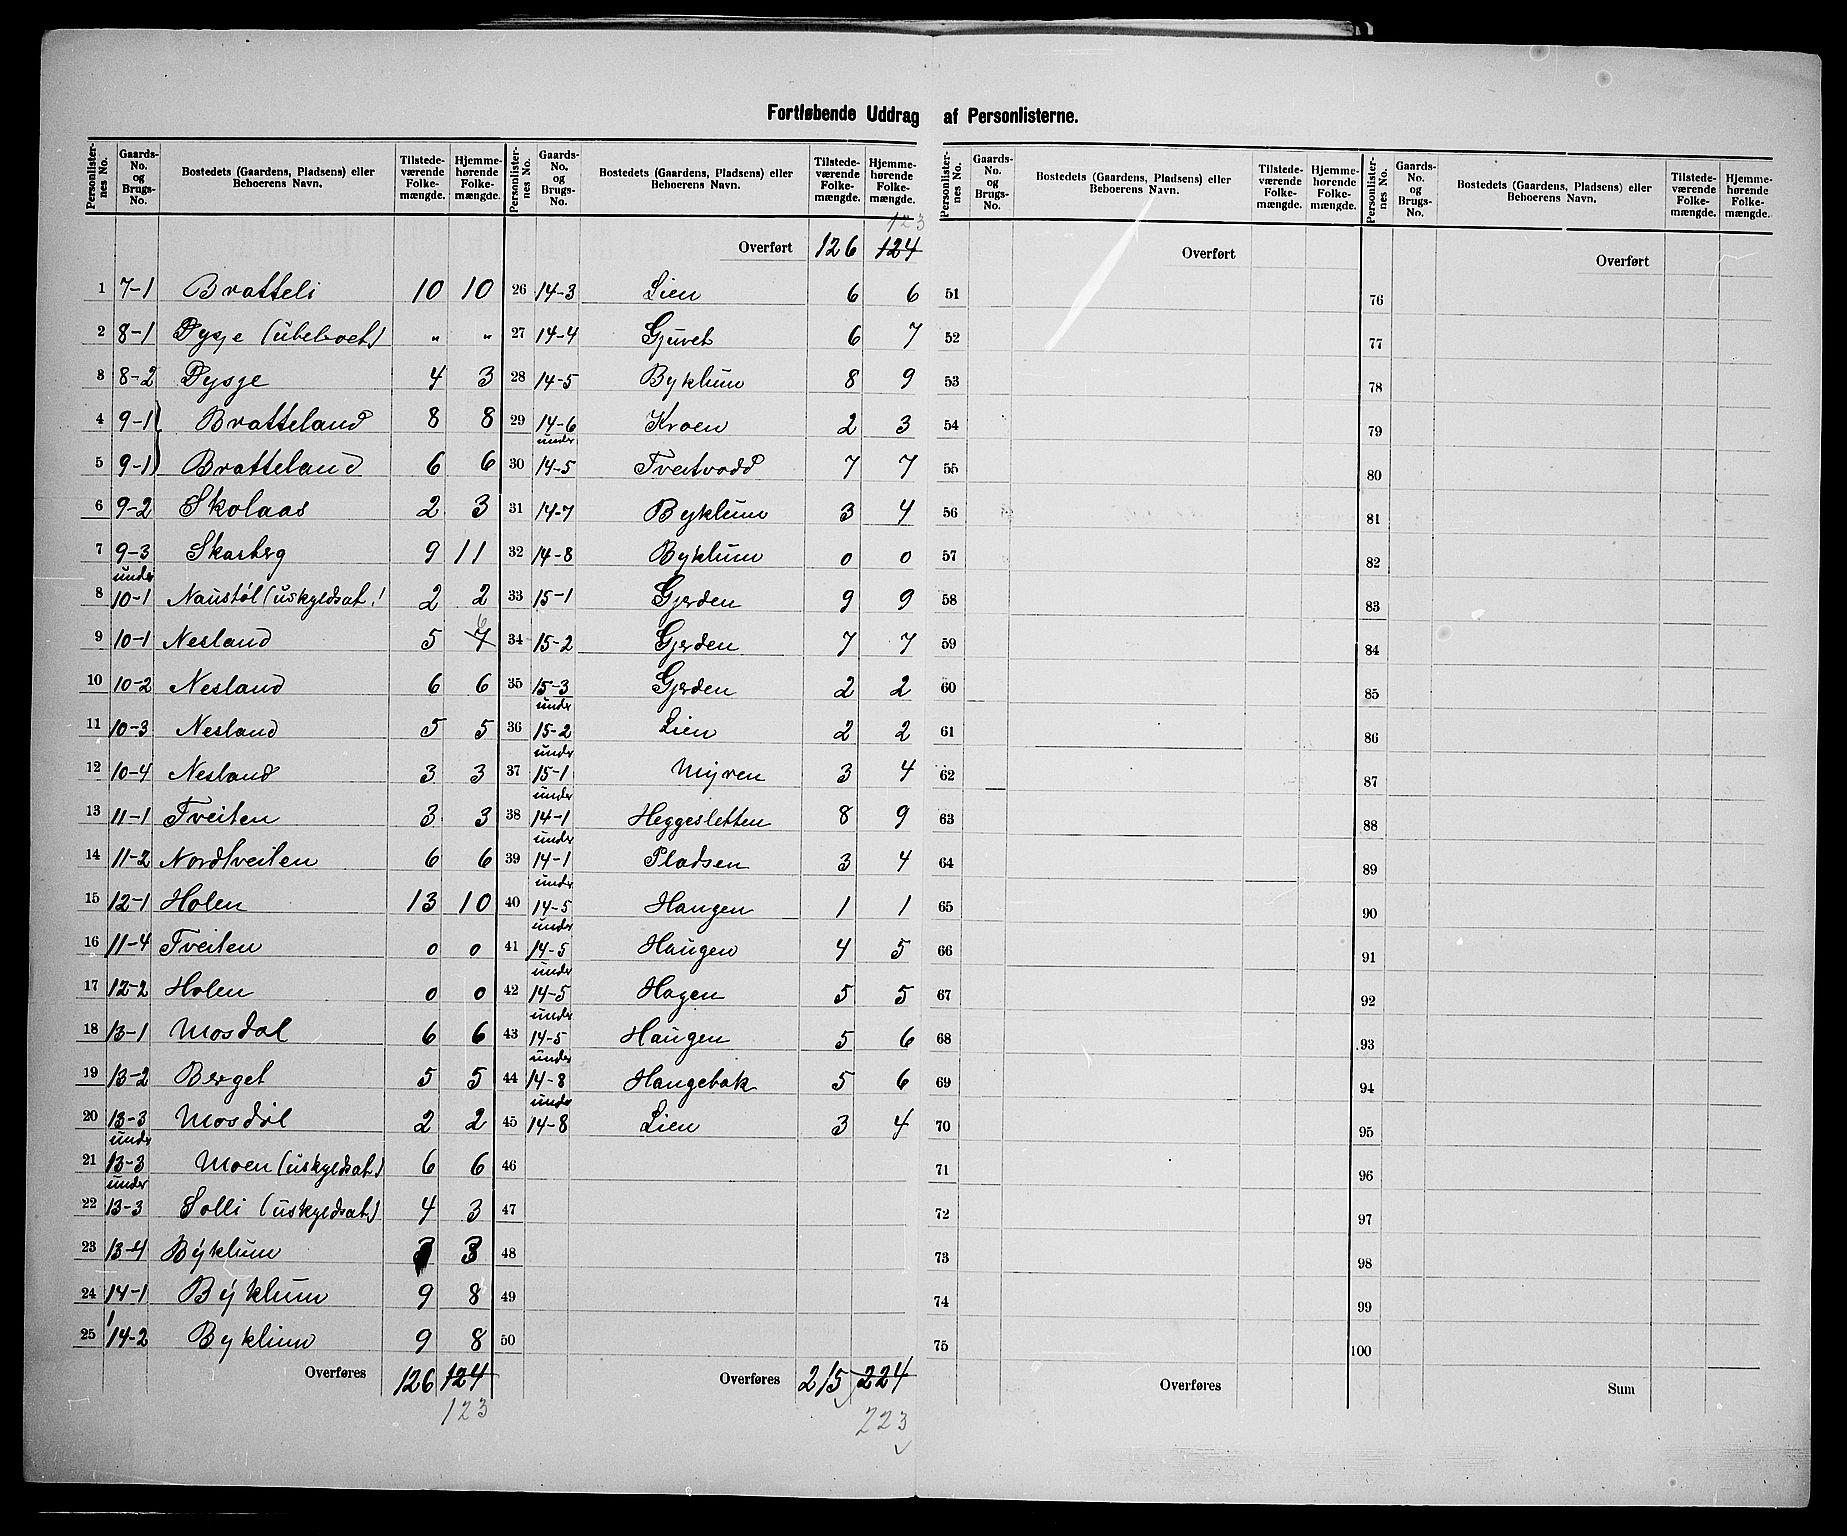 Fortløbende Uddrag af Personlisterne.
Personlisternes No. Gaards-No. og Brugs-No. Bostedets (Gaardens, Pladsens) eller Beboerens Navn. Tilstedeværende Folkemængde. Hjemmehørende Folkemængde.
1 7-1 Bratteli 10 10
2 8-1 Dysje (ubeboet) " "
3 8-2 Dysje 4 3
4 9-1 Bratteland 8 8
5 9-1 Bratteland 6 6
6 9-2 Skolaas 2 3
7 9-3 Skarberg 9 11
8 under 10-1 Naustøl (uskyldsat.) 2 2
9 10-1 Nesland 5 7 6
10 10-2 Nesland 6 6
11 10-3 Nesland 5 5
12 10-4 Nesland 3 3
13 11-1 Tveiten 3 3
14 11-2 Nordtveiten 6 6
15 12-1 Holen 13 10
16 11-4 Tveiten 0 0
17 12-2 Holen 0 0
18 13-1 Mosdøl 6 6
19 13-2 Berget 5 5
20 13-3 Mosdøl 2 2
21 under 13-3 Moen (uskyldsat.) 6 6
22 under 13-3 Solli (uskyldsat.) 4 3
23 13-4 Byklum 3 3
24 14-1 Byklum 9 8
25 14-2 Byklum 9 8
Overføres 126 124
123
Personlisternes No. Gaards-No. og Brugs-No. Bostedets (Gaardens, Pladsens) eller Beboerens Navn. Tilstedeværende Folkemængde. Hjemmehørende Folkemængde.
123
Overført 126 124
26 14-3 Lien 6 6
27 14-4 Gjuvet 6 7
28 14-5 Byklum 8 9
29 14-6 Kroen 2 3
30 under 14-5 Tveitvodd 7 7
31 14-7 Byklum 3 4
32 14-8 Byklum 0 0
33 15-1 Gjerden 9 9
34 15-2 Gjerden 7 7
35 15-3 Gjerden 2 2
36 under 15-2 Lien 2 2
37 under 15-1 Myren 3 4
38 under 14-1 Heggesletten 8 9
39 under 14-1 Pladsen 3 4
40 under 14-5 Haugen 1 1
41 under 14-5 Haugen 4 5
42 under 14-5 Hagen 5 5
43 under 14-5 Haugen 5 6
44 under 14-8 Haugebak 5 6
45 under 14-8 Lien 3 4
46
47
48
49
50
Overføres 215 224
223
Personlisternes No. Gaards-No. og Brugs-No. Bostedets (Gaardens, Pladsens) eller Beboerens Navn. Tilstedeværende Folkemængde. Hjemmehørende Folkemængde.
Overført
51
52
53
54
55
56
57
58
59
60
61
62
63
64
65
66
67
68
69
70
71
72
73
74
75
Overføres
Personlisternes No. Gaards-No. og Brugs-No. Bostedets (Gaardens, Pladsens) eller Beboerens Navn. Tilstedeværende Folkemængde. Hjemmehørende Folkemængde.
Overført
76
77
78
79
80
81
82
83
84
85
86
87
88
89
90
91
92
93
94
95
96
97
98
99
100
Sum